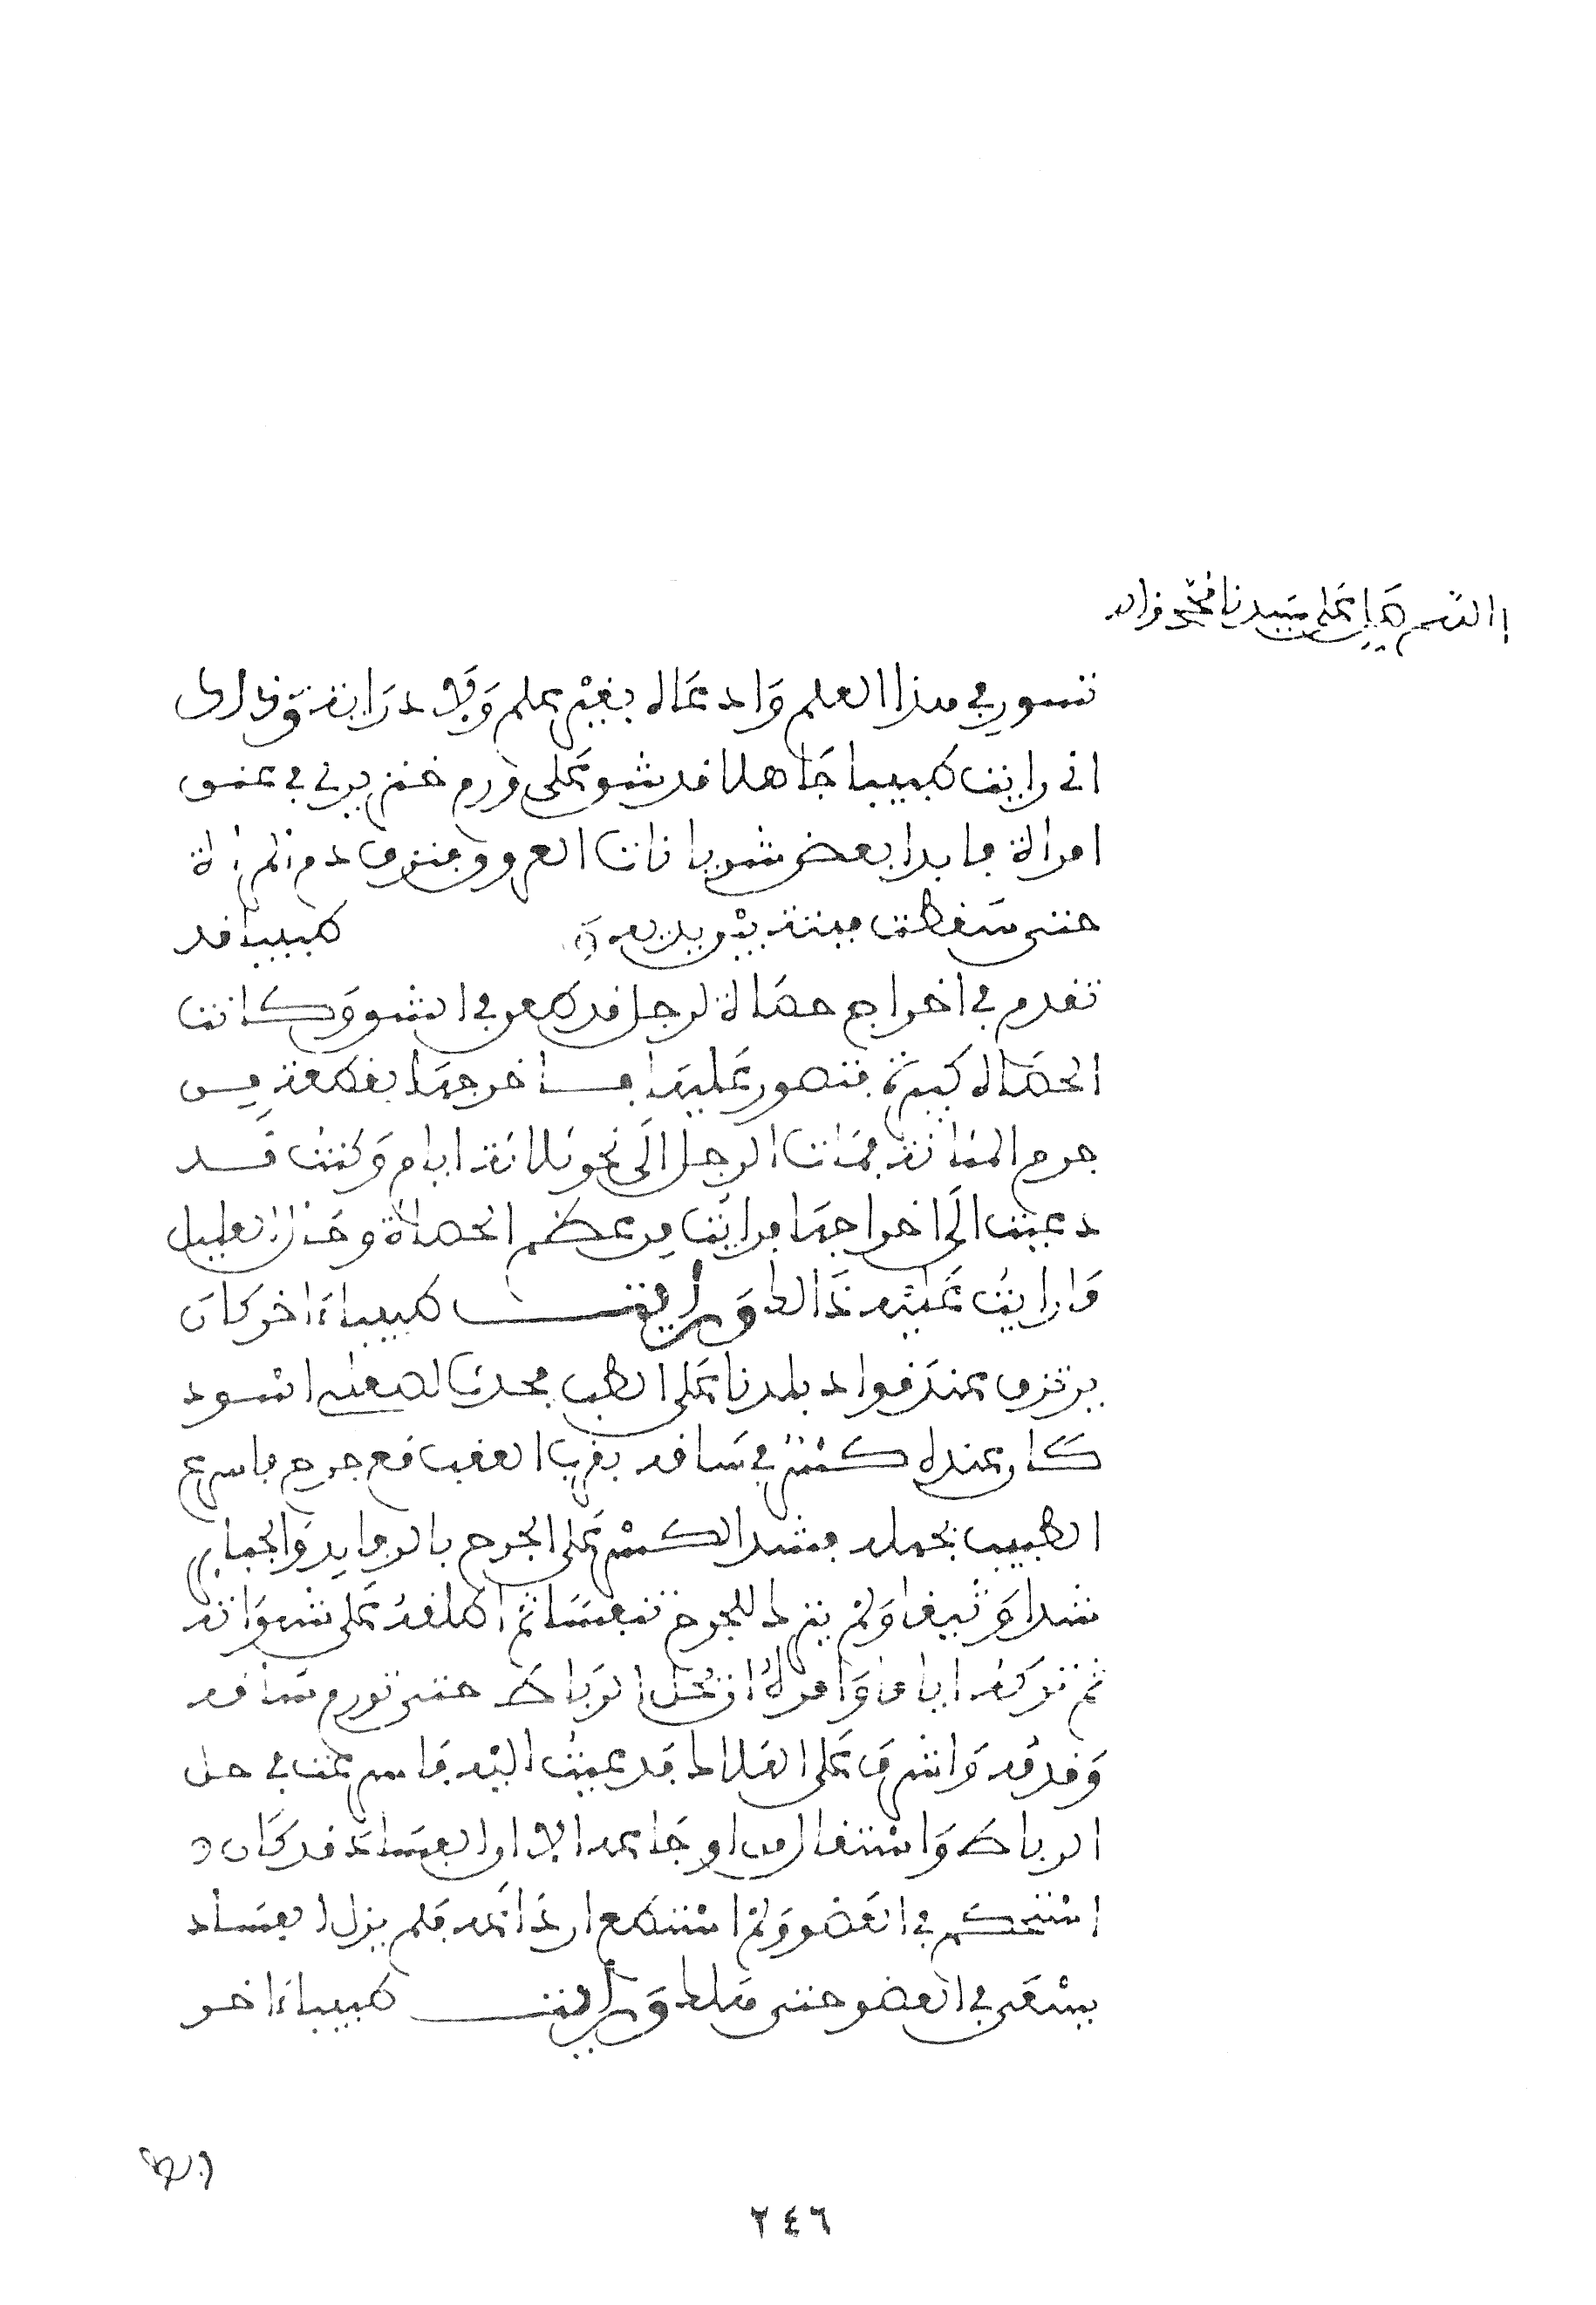 اللهم صل على سيدنا محمد واله
تسور في هذا العلم وادعاه بغير علم ولا دراية وذلك
اني رايت طبيبا جاهلا قد شق على ورم خنزيري في عنق
امراة فابدا بعض شريانات العروق فنزف دم المراة
حتى سقطت ميتة بين يديه طبيبا قد
تقدم في اخراج حصاة لرجل قد طعن في السن وكانت
الحصاة كبيرة فتهور عليها فاخرجها بقطعة من
جرم المثانة فمات الرجل الى نحو ثلاثة ايام وكنت قد
دعيت الى اخراجها فرايت من عظم الحصاة وحال العليل
ما رايت عليه ذالك ورايت طبيبا ءاخر كان
يرتزق عند قواد بلدنا على الطب فحدث لصقلبي اسود
كان عنده كسر في ساقه بقرب العقب مع جرح فاسرع
الطبيب بجهله فشد الكسر على الجرح بالرفايد والجباير
شدا وثيقا ولم يترك للجرح تنفسا ثم اطلقه على شهواته
ثم تركه اياما وامره ان لا يحل الرباط حتى تورم ساقه
وقدمه واشرف على الهلاك فدعيت اليه فاسرعت في حل
الرباط واستقال من اوجاعه الا ان الفساد قد كان
استحكم في العضو ولم استطع اردّاعه فلم يزل الفساد
يسعى في العضو حتى هلك ورايت طبيبا ءاخر
٢٤٦